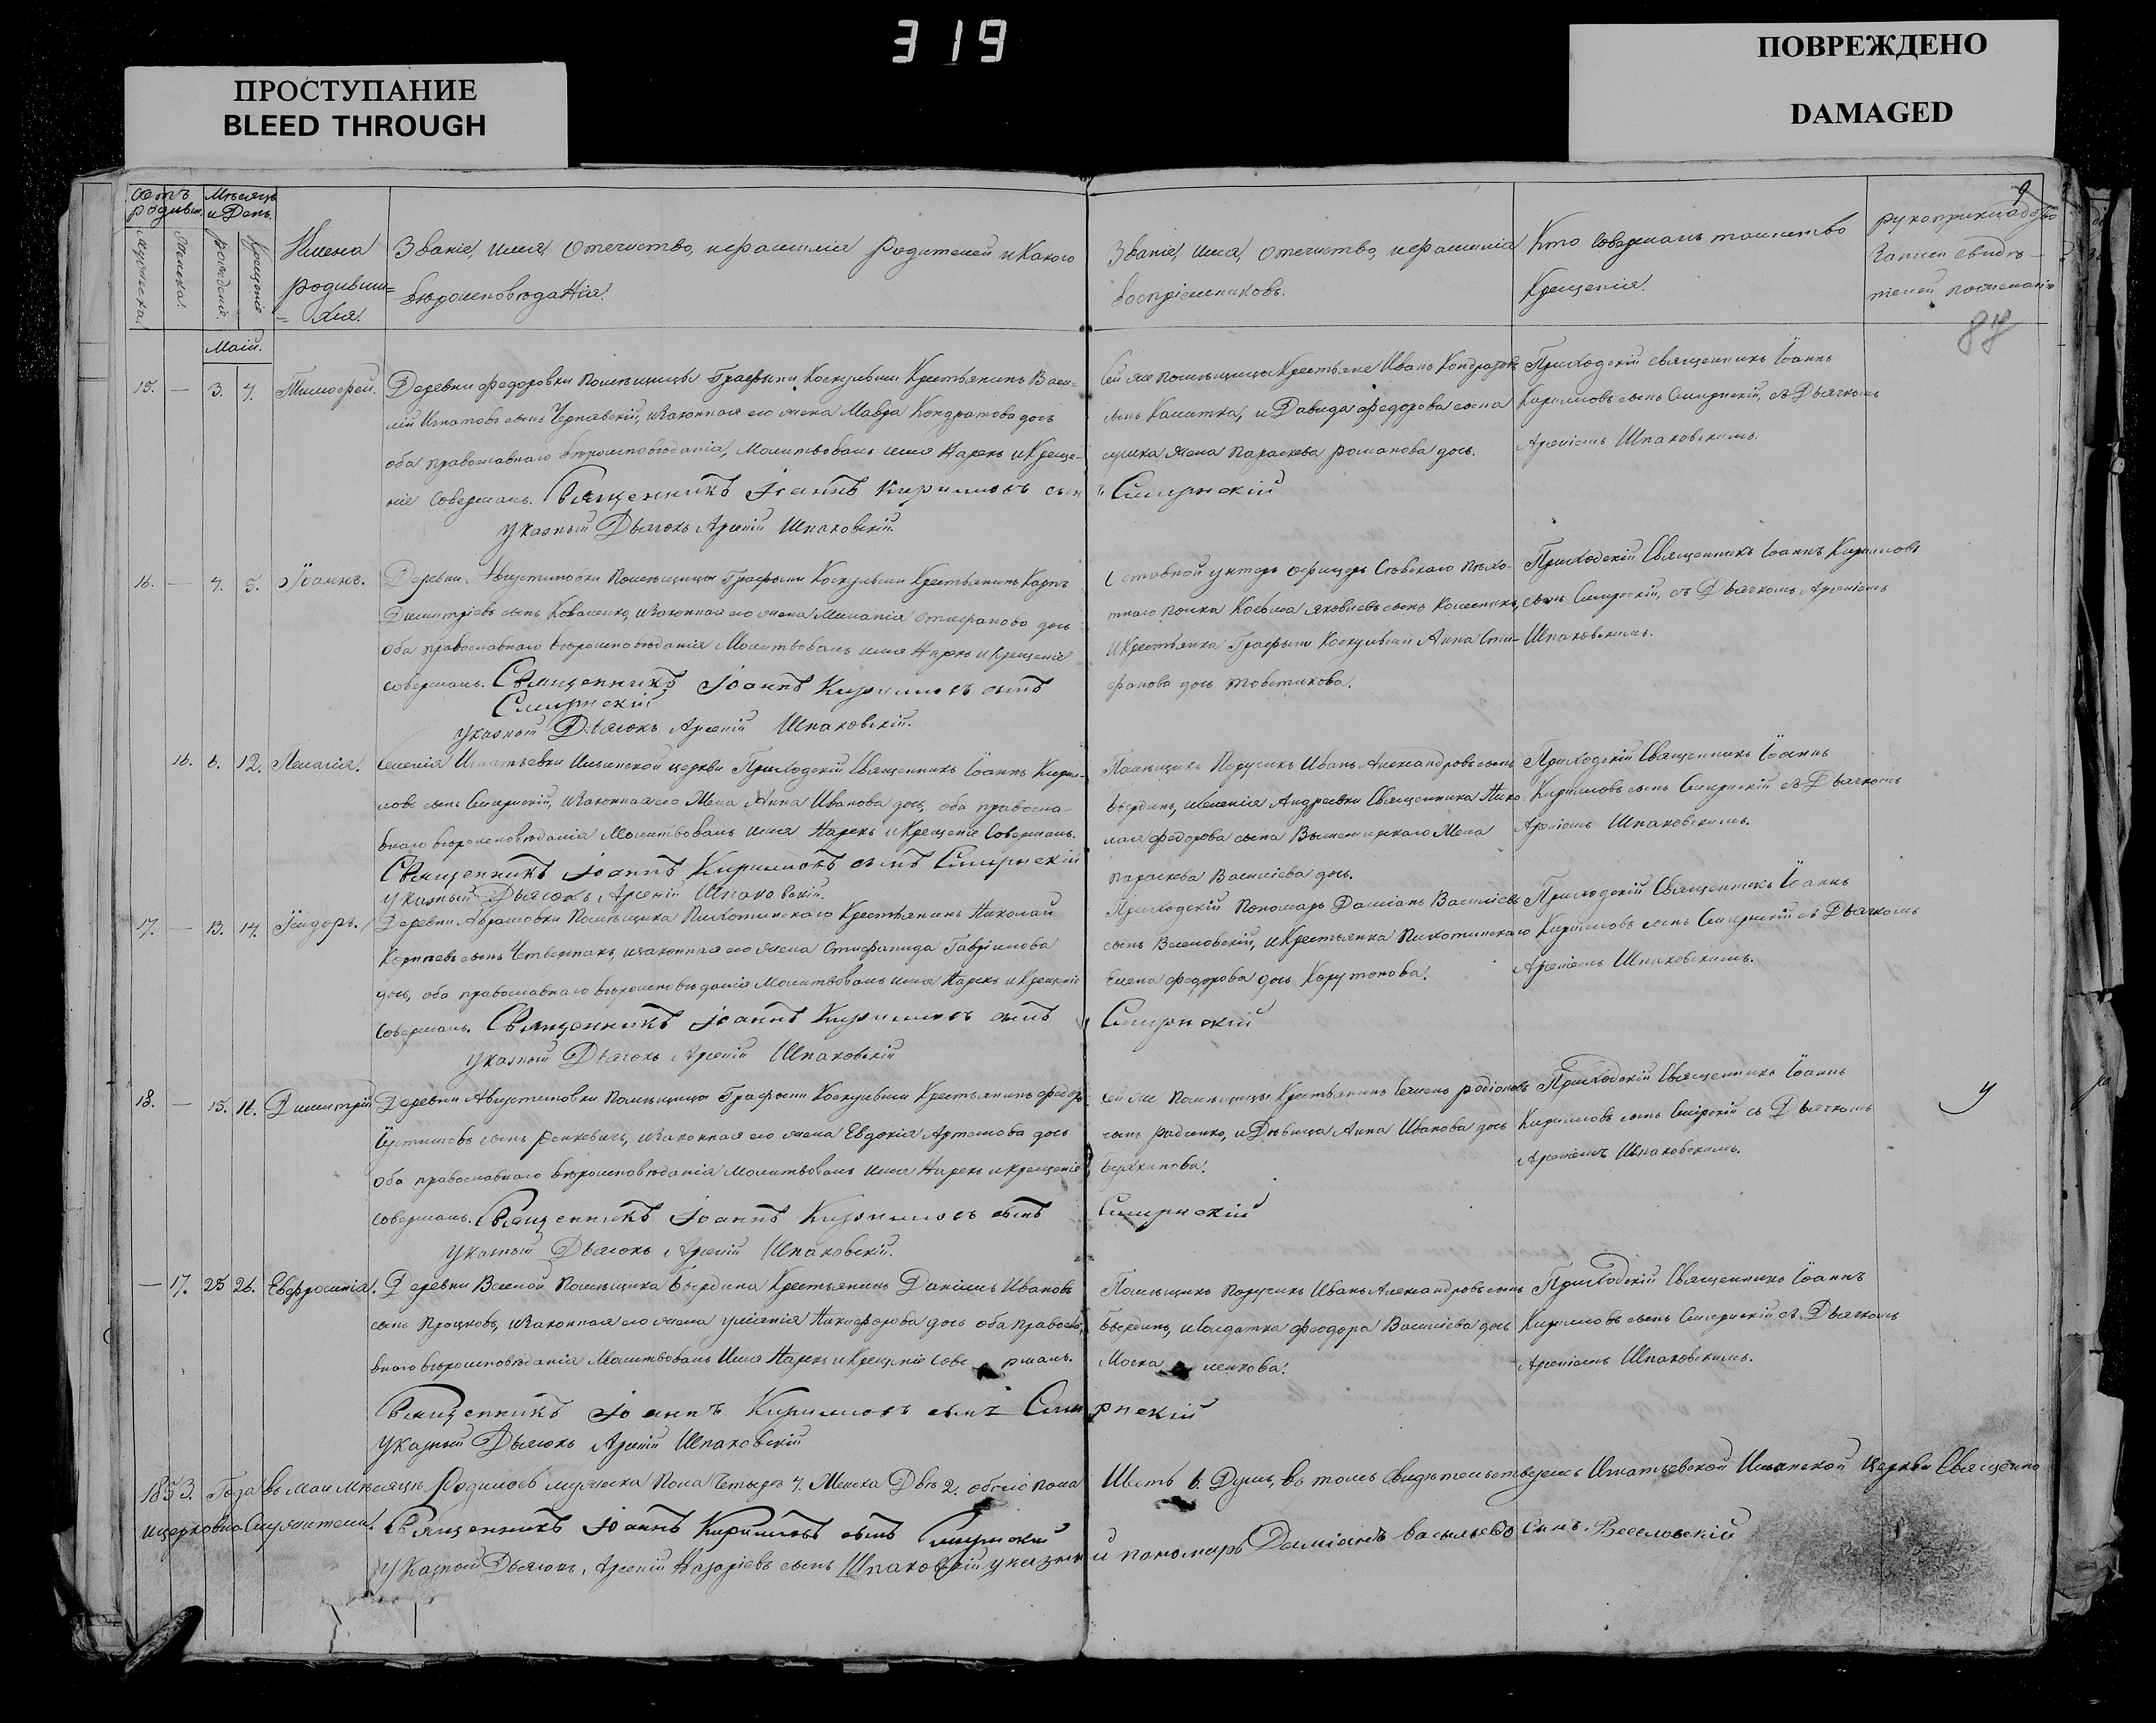 319
ПРОСТУПАНИЕ
BLEED THROUGH
ПОВРЕЖДЕНО
DAMAGED
Счетъ родивш.
Мѣсяцъ и День.
Мужеска.
Женска.
рожденія.
Крещенія
Имена
родивши=
=хся.
Званіе, имя, Отечество, и фамилія Родителей и Какого
вѣроисповѣданія.
Званіе, имя, Отечество, и фамилія
воспріемниковъ.
Кто совершалъ таинство
Крещенія.
рукоприкладство
записи свидѣ-
телей по желанію
9
Маій.
15. — 3. 4. Тимофей.
Деревни Федоровки Помѣщицы Графыни Крестьянинъ Васи-
лій Игнатовъ сынъ Чернявскій, и законная его жена Мавра Кондратова дочь
оба православнаго вѣроисповѣданія, Молитвовалъ имя Нарекъ и Креще-
ніе Совершалъ. Священникъ Іоаннъ Кириловъ сынъ Смирнскій
Указный Дьячокъ Арсеній Шпаковскій.
Сей же помѣщицы Крестьяне Иванъ Кондратовъ
сынъ Калитка, и Давида Федорова сына
жена Параскева романова дочь.
Приходскій священникъ Іоаннъ
Кириловъ сынъ Смирнскій, съ Дьячкомъ
Арсеніемъ Шпаковскимъ.
16. — 4. 5. Іоаннъ.
Деревни Августиновки Помѣщицы Графыни Крестьянинъ Карпъ
Димитріевъ сынъ Коваленко, и законная его жена Миланія Стефанова дочь
Оба православнаго вѣроисповѣданія Молитвовалъ имя Нарекъ и Крещеніе
совершалъ. Священникъ Іоаннъ Кириловъ сынъ
Смирнскій
Указный Дьячокъ Арсеній Шпаковскій.
унтеръ офицеръ Пѣхо-
тнаго полка Косьма Яковлевъ сынъ
и Крестьянка Графыни Анна Сте-
фанова дочь
Приходскій Священникъ Іоаннъ Кириловъ
сынъ Смирнскій, съ Дьячкомъ Арсеніемъ
Шпаковскимъ.
16. 6. 12. Пелагія.
Селенія Игнатьевки Ильинской церкви Приходскій Священникъ Іоаннъ Кирил-
ловъ сынъ Смирнскій, и законная его Жена Анна Иванова дочь, оба правосла-
внаго вѣроисповѣданія Молитвовалъ имя Нарекъ и Крещеніе Совершалъ.
Священникъ Іоаннъ Кириловъ сынъ Смирнскій
Указный Дьячокъ Арсеній Шпаковскій.
Помѣщикъ Поручикъ Иванъ Александровъ сынъ
Бердинъ, и селенія Андреевки Священника Нико-
лая Федорова сына Жена
Параскева Василіева дочь.
Приходскій Священникъ Іоаннъ
Кириловъ сынъ Смирнскій съ Дьячкомъ
Арсеніемъ Шпаковскимъ.
17. — 13. 14. Ісидоръ.
Деревни Абрамовки Помѣщика Пихотинскаго Крестьянинъ Николай
сынъ Четвертакъ, и законная его жена Стефанида Гаврилова
дочь, оба православнаго вѣроисповѣданія Молитвовалъ имя Нарекъ и Крещеніе
Совершалъ. Священникъ Іоаннъ Кириловъ сынъ Смирнскій
Указный Дьячокъ Арсеній Шпаковскій
Приходскій Пономарь Даміанъ Василіевъ
сынъ Веселовскій, и Крестьянка Пихотинскаго
Елена Федорова дочь
Приходскій Священникъ Іоаннъ
Кириловъ сынъ Смирнскій съ Дьячкомъ
Арсеніемъ Шпаковскимъ.
18. — 15. 16. Димитрій
Деревни Августиновки Помѣщицы Графыни Крестьянинъ
сынъ и законная его жена Евдокія Артемова дочь
Оба православнаго вѣроисповѣданія Молитвовалъ имя Нарекъ и Крещеніе
Совершалъ. Священникъ Іоаннъ Кириловъ сынъ Смирнскій
Указный Дьячокъ Арсеній Шпаковскій.
Сей же Помѣщицы Крестьянинъ Семенъ родіоновъ
сынъ радченко, и Дѣвица Анна Иванова дочь
Приходскій Священникъ Іоаннъ
Кириловъ сынъ Смирнскій съ Дьячкомъ
Арсеніемъ Шпаковскимъ.
— 17. 25 26. Евфросинія.
Деревни Помѣщика Бердина Крестьянинъ Даніилъ Ивановъ
сынъ и законная его жена Никифорова дочь оба правосла-
внаго вѣроисповѣданія Молитвовалъ Имя Нарекъ и Крещеніе Совершалъ.
Священникъ Іоаннъ Кириловъ сынъ Смирнскій
Указный Дьячокъ Арсеній Шпаковскій
Помѣщикъ Поручикъ Иванъ Александровъ сынъ
Бердинъ, и Солдатка Феодора Василіева дочь
Москаленкова.
Приходскій Священникъ Іоаннъ
Кириловъ сынъ Смирнскій съ Дьячкомъ
Арсеніемъ Шпаковскимъ.
1853. Года въ маи Мѣсяцѣ Родилось мужеска Пола Четыре 4. Женска Двѣ 2. обоего пола Шесть 6. Душъ, въ томъ свидѣтельствуемъ Игнатьевской Ильинской церкви Священно
и церковно Служители. Священникъ Іоаннъ Кириловъ сынъ Смирнскій
Указный Дьячокъ, Арсеній Назаріевъ сынъ Шпаковскій указный пономарь Даміанъ васильевъ Сынъ Веселовскій